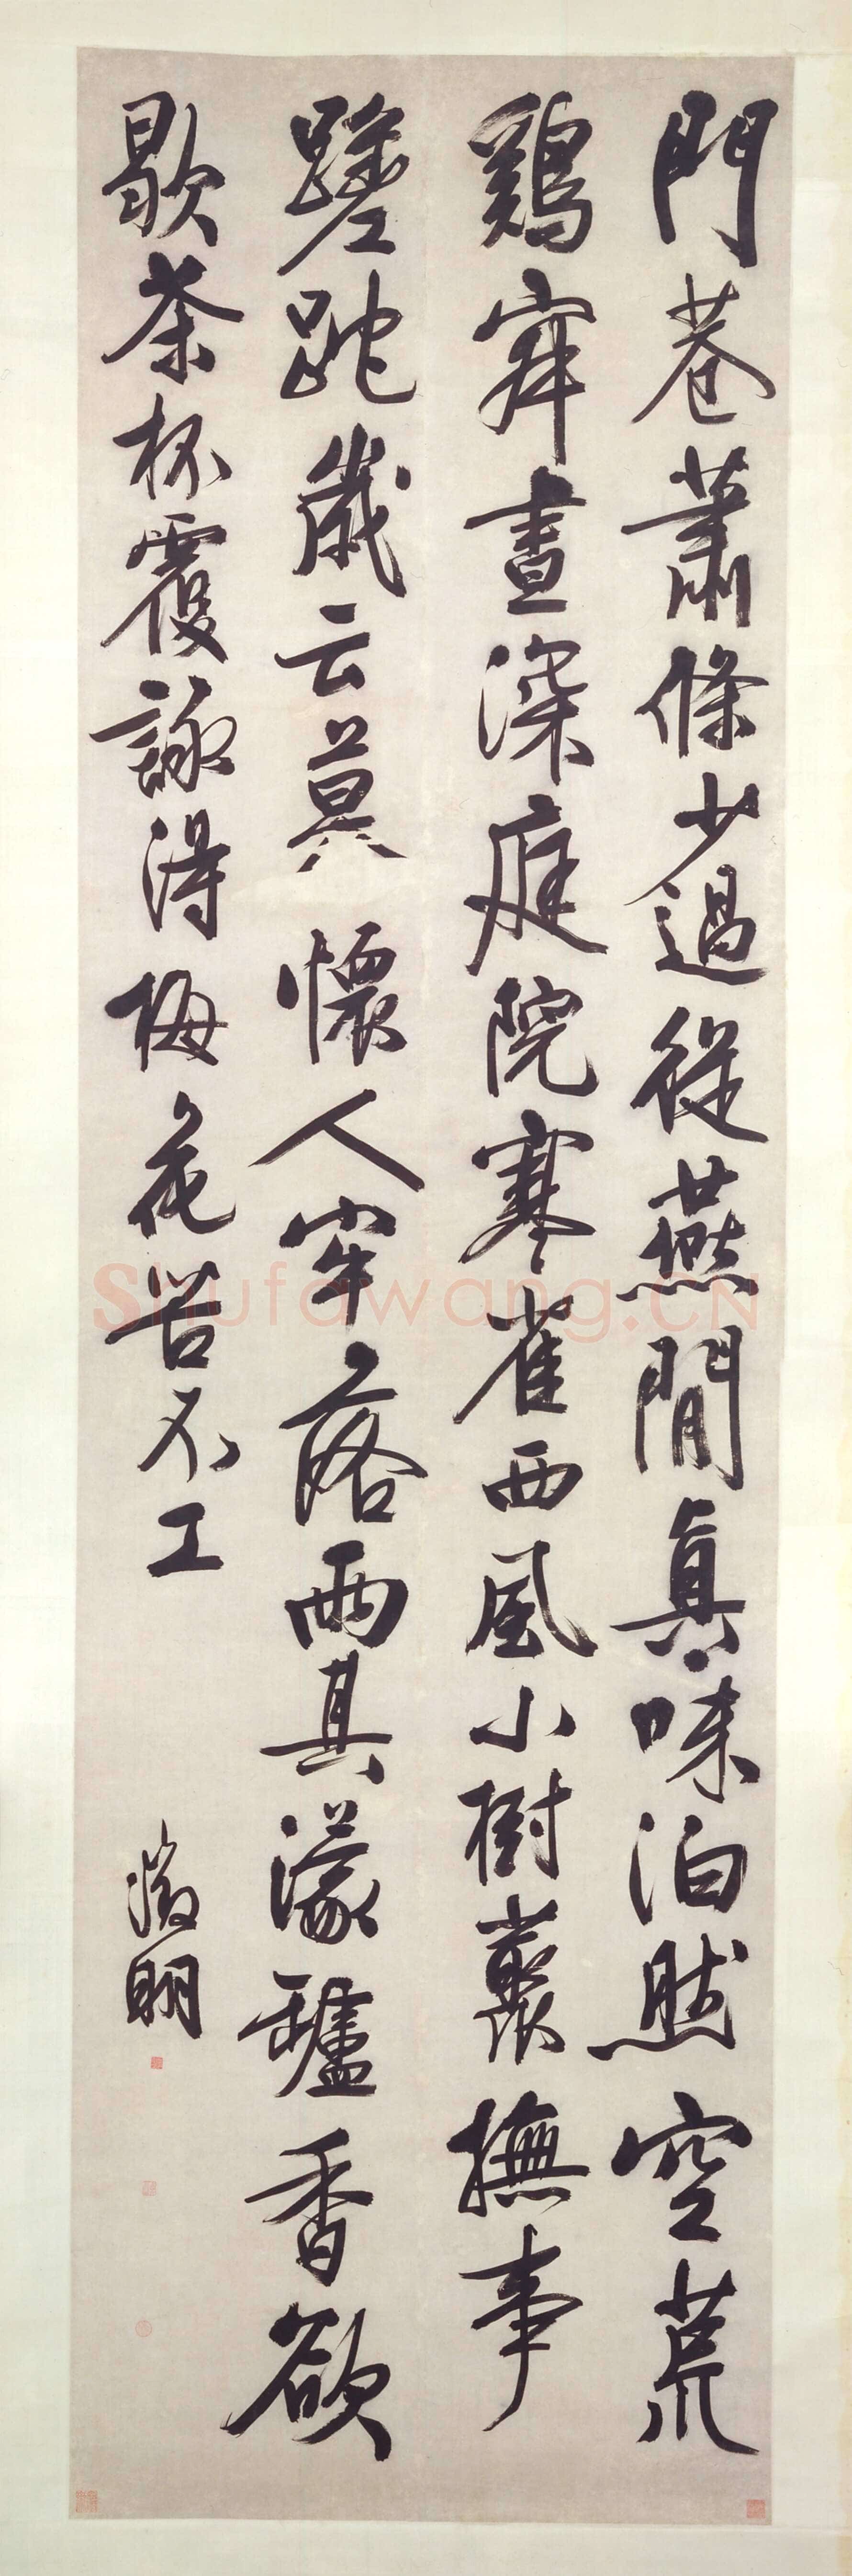 門巷蕭條少過從燕閒真味泊然空荒
鷄寂晝深庭院寒雀西風小樹叢撫事
蹉跎歲云莫懷人牢落雨其濛罏香欲
歇茶杯覆詠得梅花苦不工
徵明
Shufawang.CN